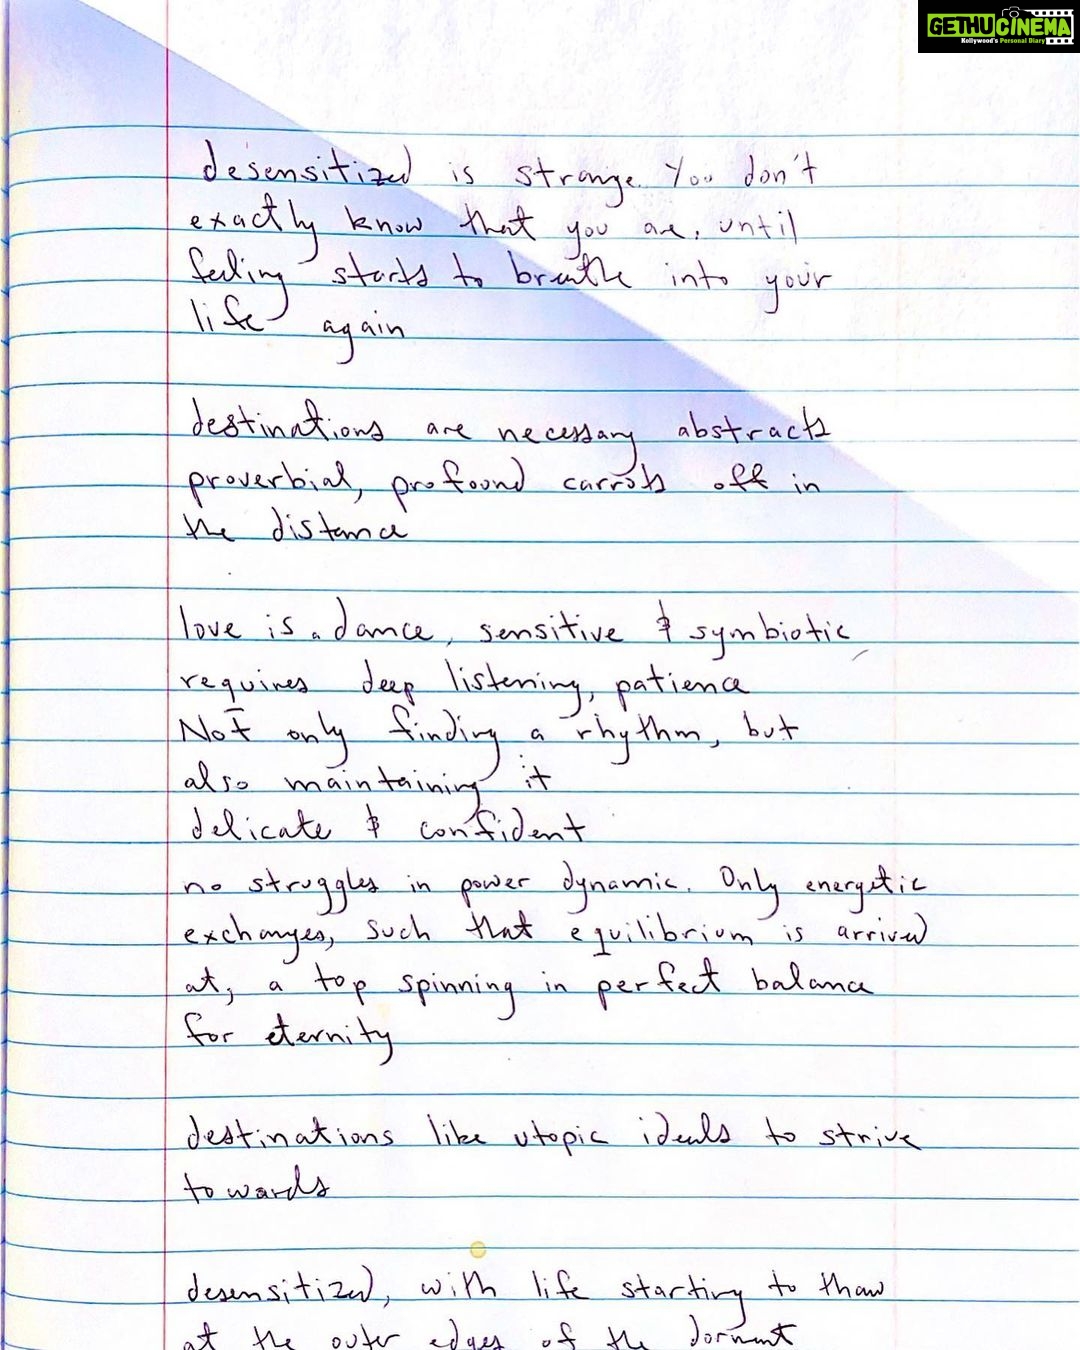 GETHUCINEMA
Kollywood's Personal Diary
desensitized is strange. You don't
exactly know that you are, until
feeling starts to breathe into your
life again
destinations are necessary abstracts
proverbial, profound carrots off in
the distance
love is a dance, sensitive & symbiotic
requires deep listening, patience
Not only finding a rhythm, but
also maintaining it
delicate & confident
no struggles in power dynamic. Only energetic
exchanges, such that equilibrium is arrived
at, a top spinning in perfect balance
for eternity
destinations like utopic ideals to strive
towards
desensitized, with life starting to thaw
at the outer edges of the dormant